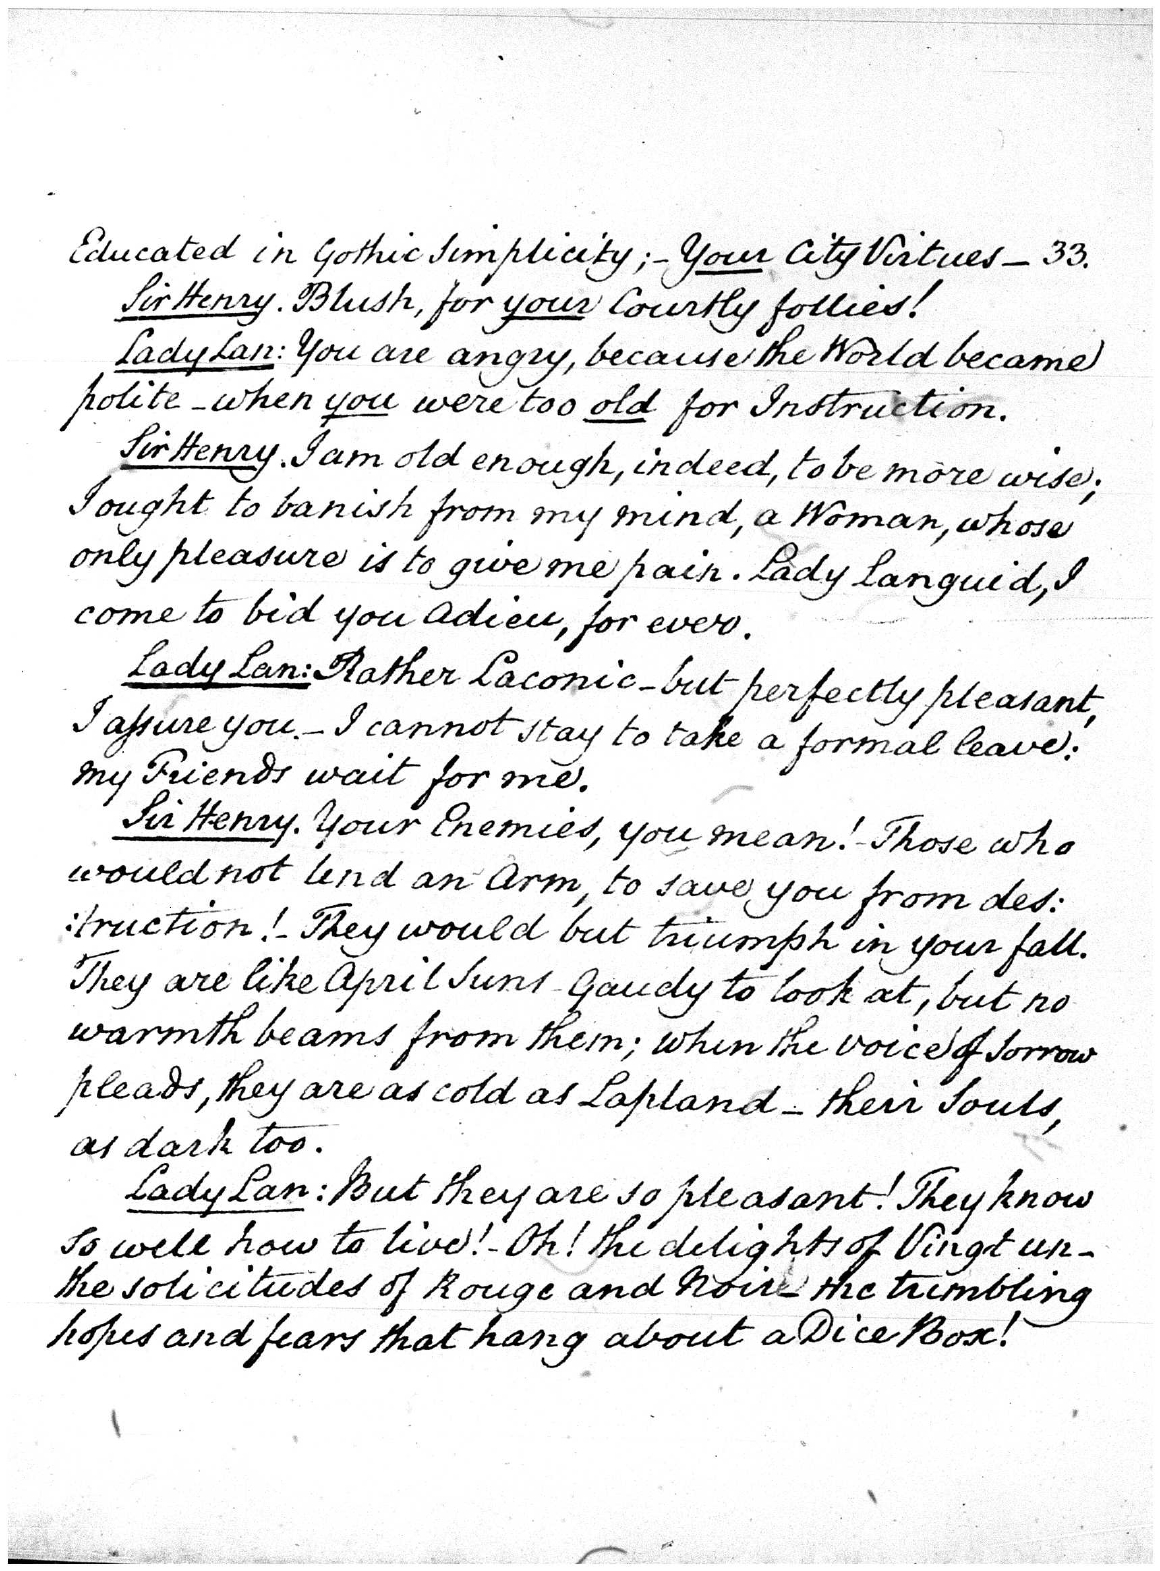 Educated in Gothic Simplicity;- Your City Virtues - 33.
Sir Henry. Blush, for your Courtly follies!
Lady Lan: You are angry, because the World became
polite - when you were too old for Instruction.
Sir Henry. I am old enough, indeed, to be more wise;
I ought to banish from my mind, a Woman, whose
only pleasure is to give me pain. Lady Languid, I
come to bid you Adieu, for ever.
Lady Lan: Rather Laconic - but perfectly pleasant,
I assure you. - I cannot stay to take a formal leave:
my Friends wait for me.
Sir Henry. Your Enemies, you mean! - Those who
would not lend an Arm, to save you from des:
:truction! - They would but triumph in your fall.
They are like April Suns - Gaudy to look at, but no
warmth beams from them; when the voice of Sorrow
pleads, they are as cold as Lapland - their Souls,
as dark too.
Lady Lan: But they are so pleasant! They know
so well how to live! - Oh! the delights of Vingt un -
the solicitudes of Rouge and Noir - the trembling
hopes and fears that hang about a Dice Box!